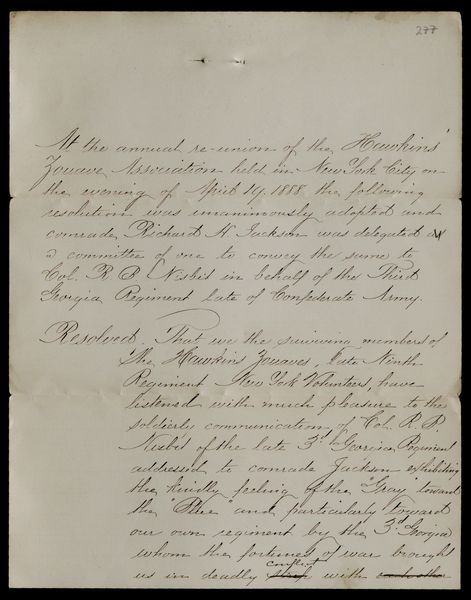 277
At the annual re-union of the Hawkins'
Zouave Association held in New York City on
the evening of April 19. 1888. the following
resolution was unanimously adopted and
comrade Richard H Jackson was delegated as
a committee of one to convey the same to
Col. R B Nisbit in behalf of the Third
Georgia Regiment late of Confederate Army.
Resolved. That we the surviving members of
the Hawkins Zouaves, late Ninth
Regiment New York Volunteers, have
listened with much pleasure to the
soldierly communication of Col. R. B.
Nisbit of the late 3d Georgia Regiment
addressed to comrade Jackson exhibiting
the kindly feeling of the "Gray" toward
the "Blue" and particularly toward
our own regiment by the 3d Georgia
whom the fortunes of war brought
conflict
us in deadly with each other